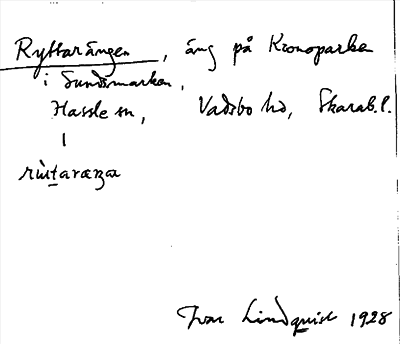 Ryttarängen, äng på Kronoparken
i Sundsmarken,
Hassle sn, Vadsbo hd, Skarab.l.
Ivar Lindquist 1928